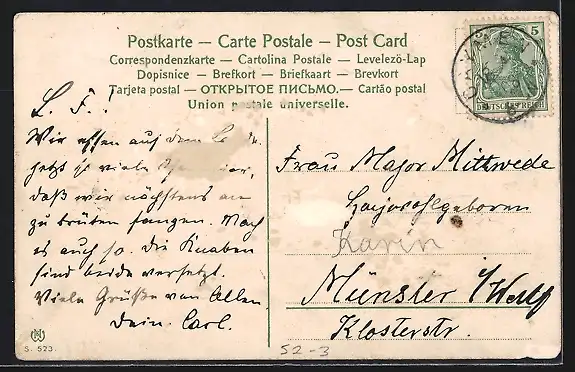 Postkarte — Carte Postale — Post Card
Correspondenzkarte — Cartolina Postale — Levelező-Lap
Dopisnice — Brefkort — Briefkaart — Brevkort
Tarjeta postal — ОТКРЫТОЕ ПИСЬМО. — Cartão postal
Union postale universelle.
5
DEUTSCHES REICH
L. F.!
Wir essen auf dem
jetzt so viele
daß wir nächstens an
zu brüten fangen. Mach
es auch so. Die Knaben
sind beide versetzt.
Viele Grüße von Allen.
Dein Carl.
Frau Major Mittwede
Hochwohlgeboren
Karin
Münster i/Westf
Klosterstr.
S. 523.
52-3